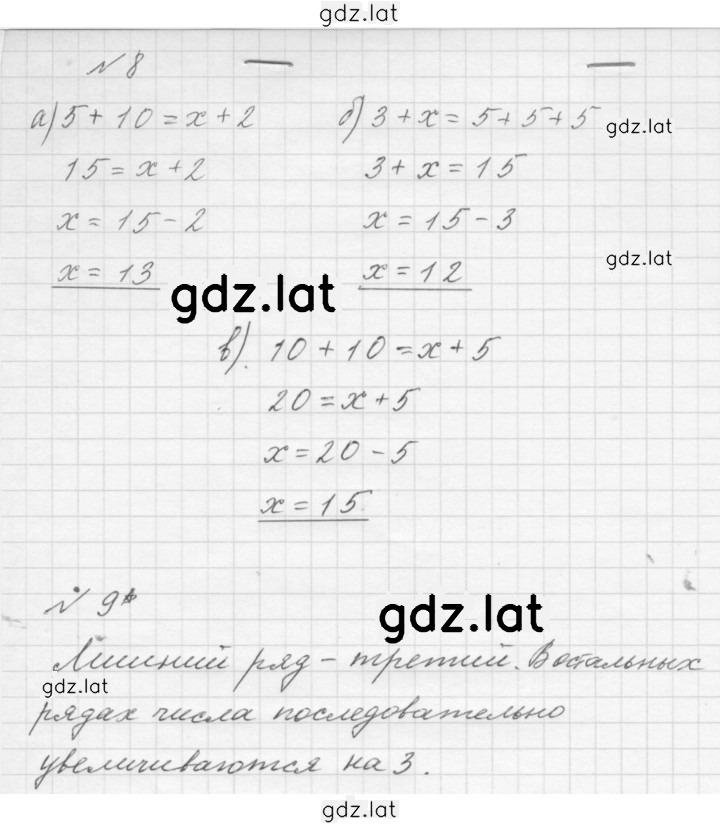 gdz.lat
№ 8
а) 5 + 10 = x + 2
б) 3 + x = 5 + 5 + 5
gdz.lat
15 = x + 2
3 + x = 15
x = 15 - 2
x = 15 - 3
x = 13
x = 12
gdz.lat
gdz.lat
в). 10 + 10 = x + 5
20 = x + 5
x = 20 - 5
x = 15
№ 9*
gdz.lat
Лишний ряд - третий. В остальных
gdz.lat
рядах числа последовательно
увеличиваются на 3.
gdz.lat